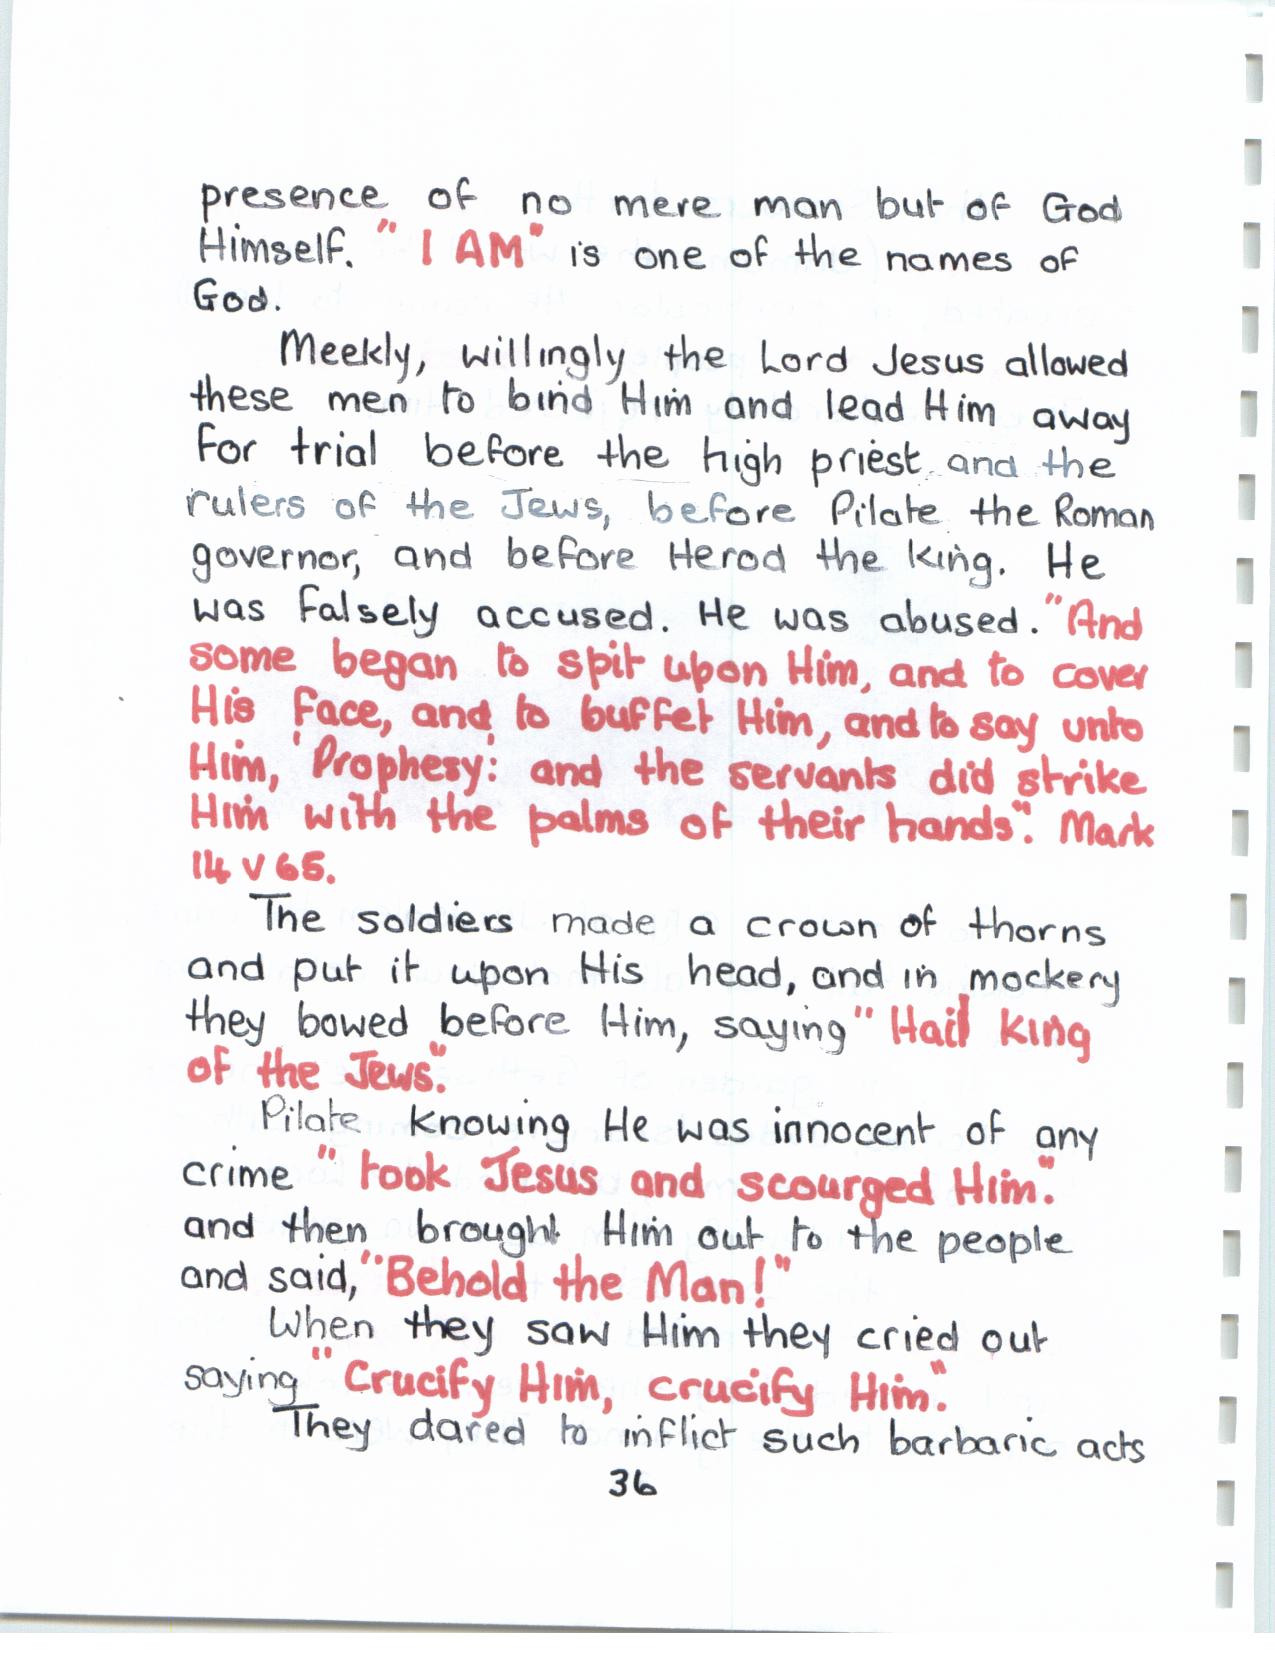 presence of no mere man but of God
Himself. "I AM" is one of the names of
God.
Meekly, willingly the Lord Jesus allowed
these men to bind Him and lead Him away
for trial before the high priest and the
rulers of the Jews, before Pilate the Roman
governor, and before Herod the king. He
was falsely accused. He was abused. "And
some began to spit upon Him, and to cover
His face, and to buffet Him, and to say unto
Him, 'Prophesy': and the servants did strike
Him with the palms of their hands". Mark
14 v 65.
The soldiers made a crown of thorns
and put it upon His head, and in mockery
they bowed before Him, saying "Hail King
of the Jews".
Pilate knowing He was innocent of any
crime "took Jesus and scourged Him".
and then brought Him out to the people
and said, "Behold the Man!"
When they saw Him they cried out
saying "Crucify Him, crucify Him".
They dared to inflict such barbaric acts
36